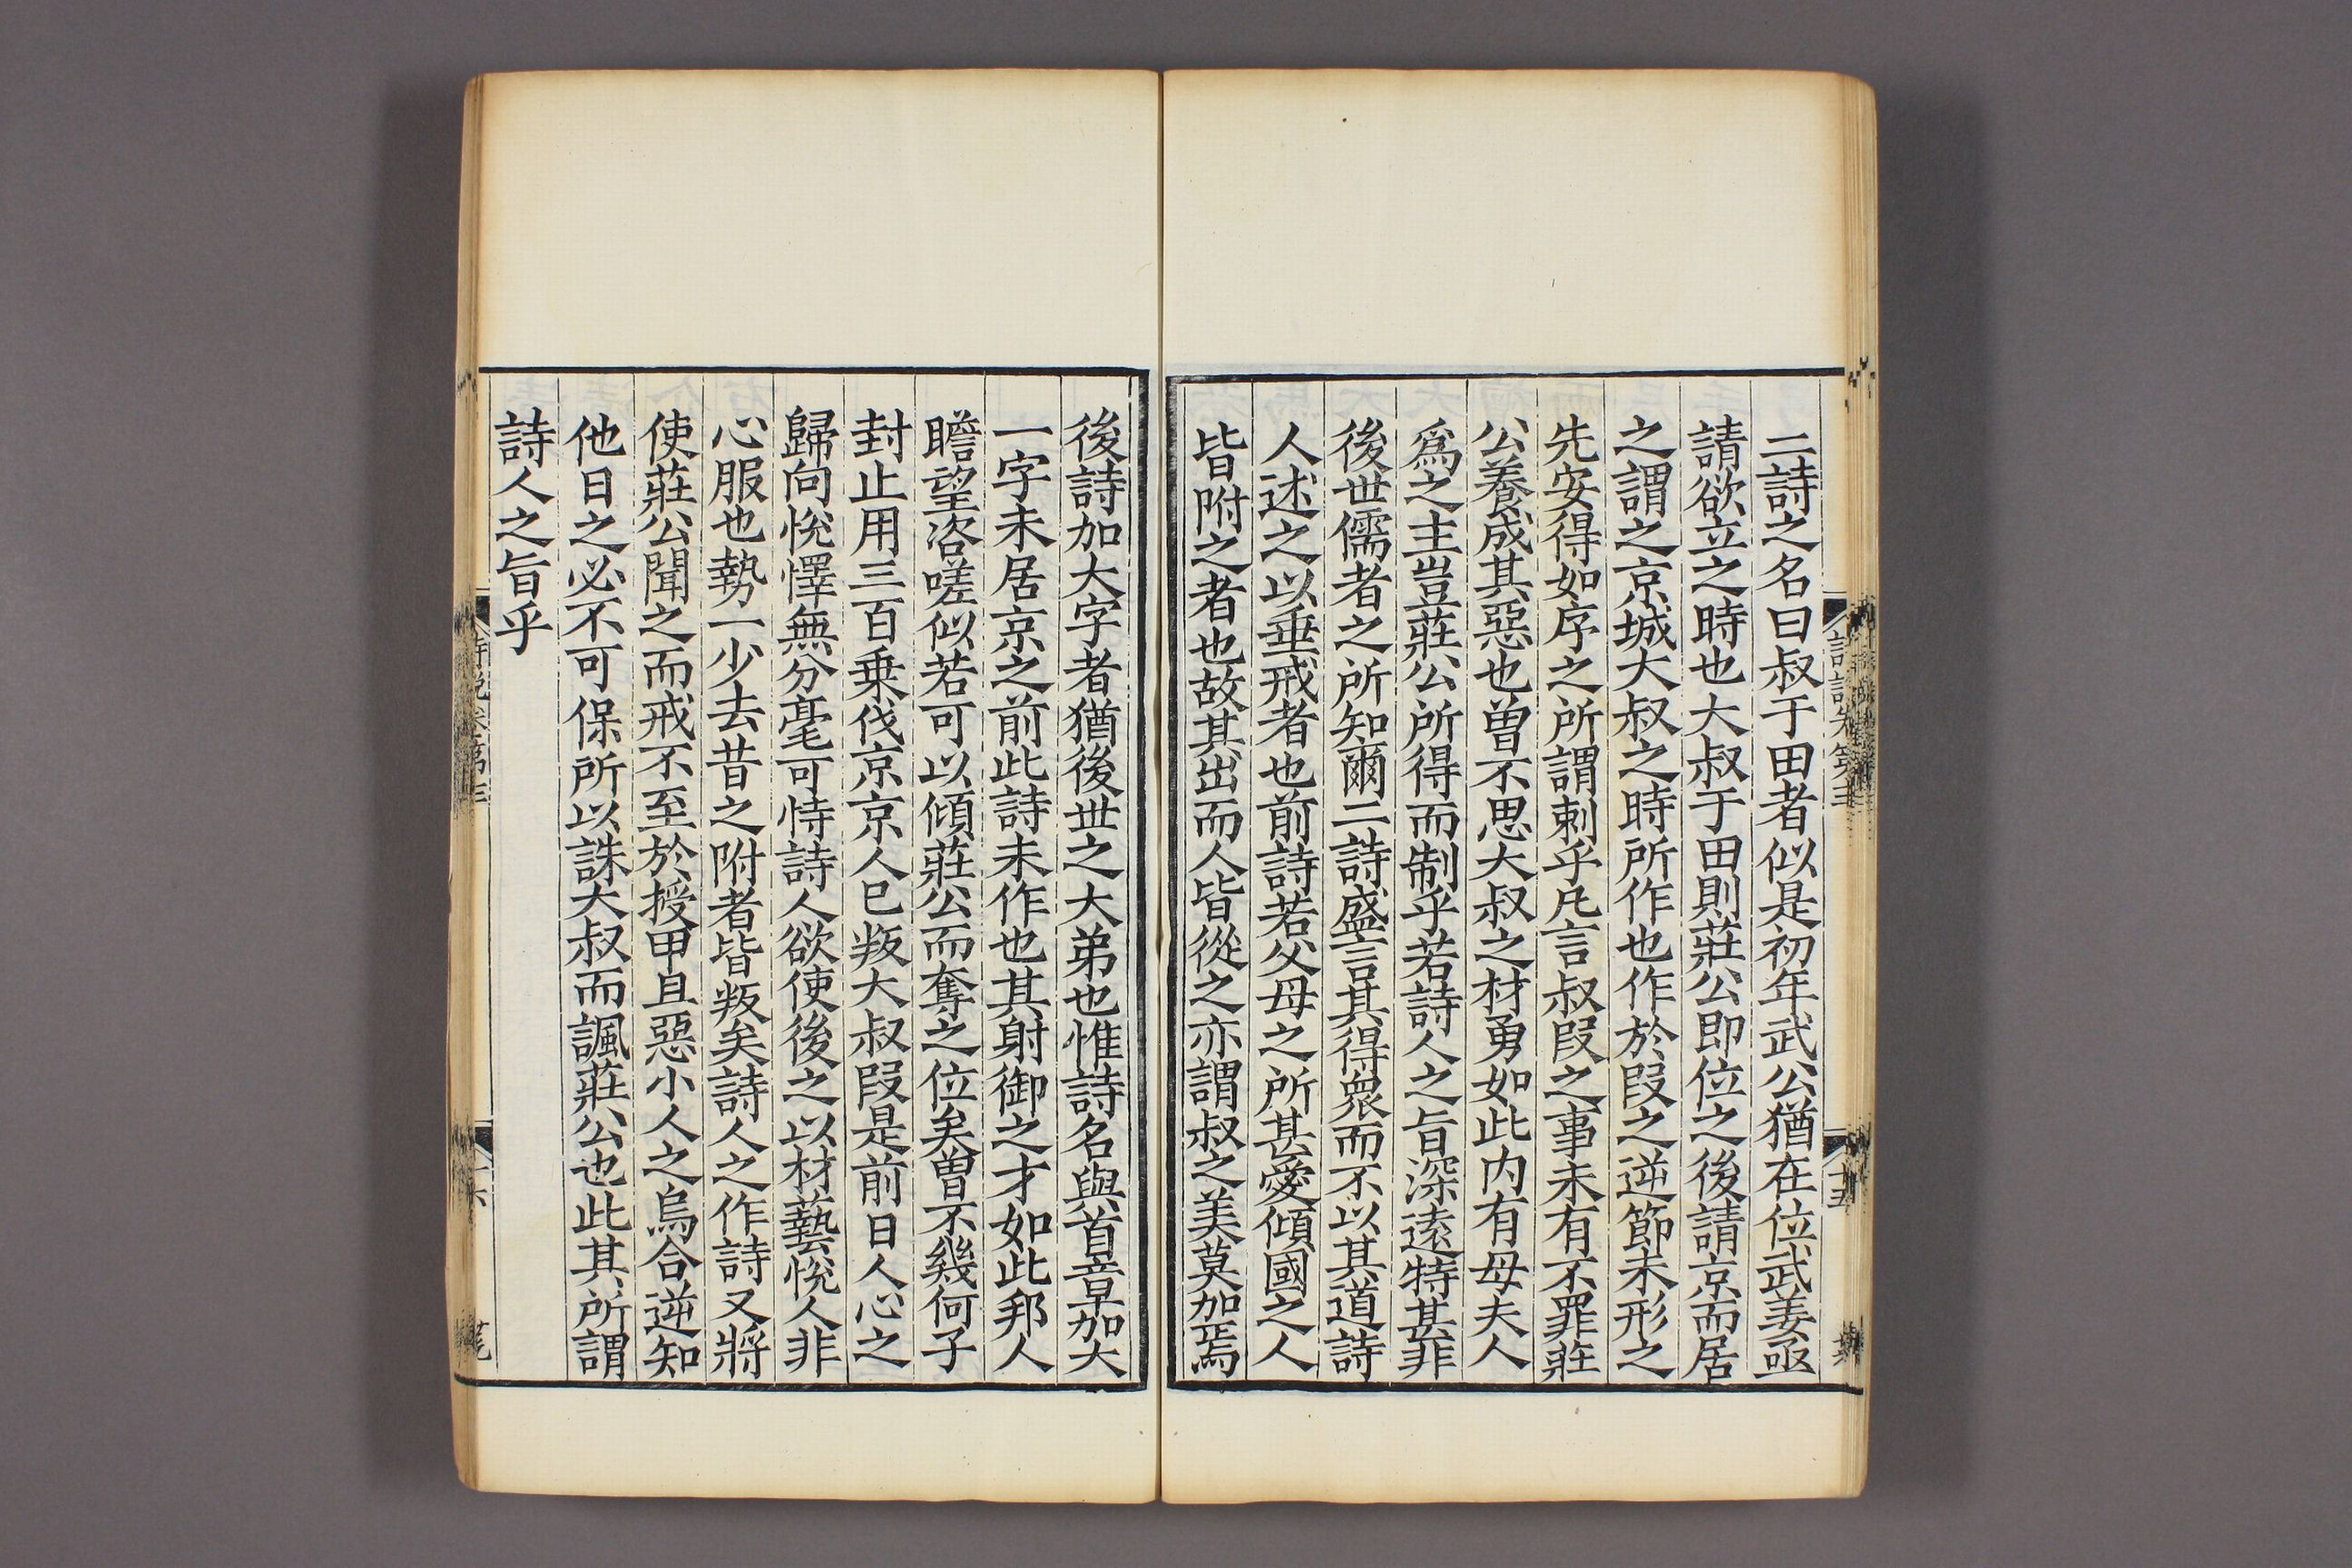 二詩之名曰叔于田者似是初年武公猶在位武姜亟
請欲立之時也大叔于田則莊公即位之後請京而居
之謂之京城大叔之時所作也作於叚之逆節未形之
先安得如序之所謂刺乎凡言叔叚之事未有不罪莊
公養成其惡也曽不思大叔之材勇如此内有母夫人
爲之主豈莊公所得而制乎若詩人之旨深遠特甚非
後世儒者之所知爾二詩盛言其得衆而不以其道詩
人述之以垂戒者也前詩若父母之所甚愛傾國之人
皆附之者也故其出而人皆從之亦謂叔之美莫加焉
後詩加大字者猶後世之大弟也惟詩名與首章加大
一字未居京之前此詩未作也其射御之才如此邦人
瞻望咨嗟似若可以傾莊公而奪之位矣曽不幾何子
封止用三百乗伐京京人已叛大叔叚是前日人心之
歸向悅懌無分毫可恃詩人欲使後之以材藝悅人非
心服也勢一少去昔之附者皆叛矣詩人之作詩又將
使莊公聞之而戒不至於授甲且惡小人之烏合逆知
他日之必不可保所以誅大叔而諷莊公也此其所謂
詩人之旨乎
詩説卷第三